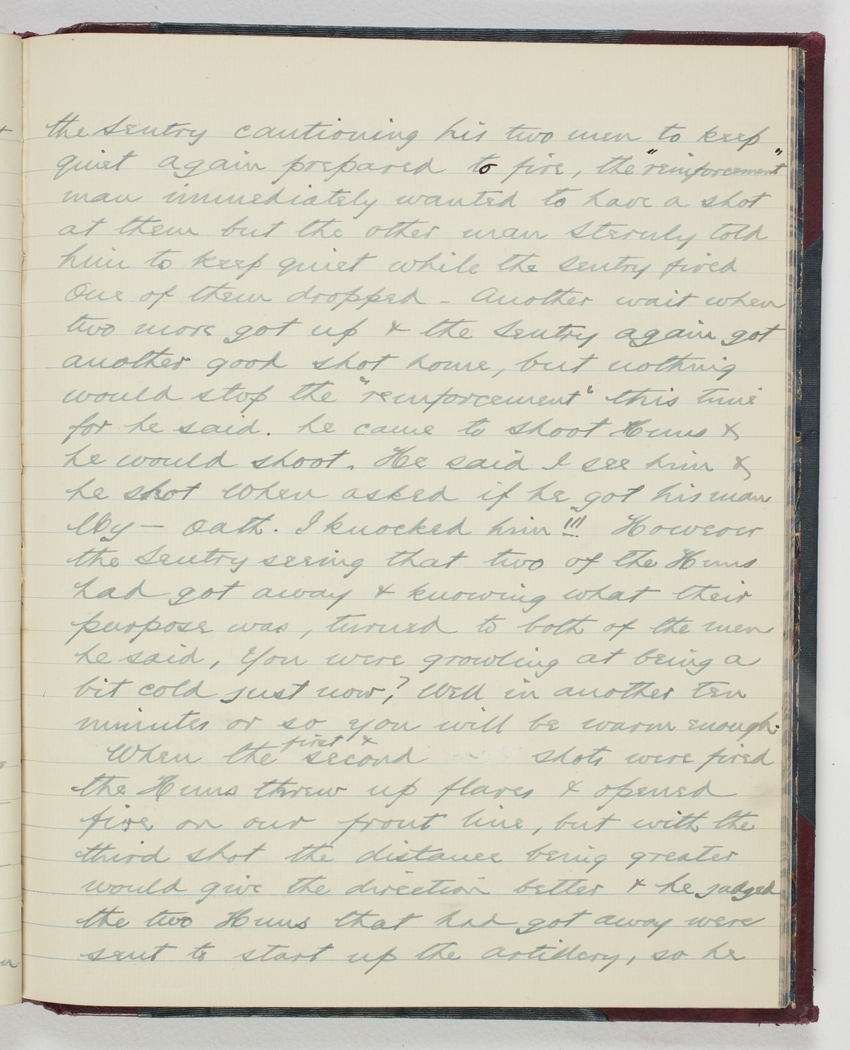 the Sentry cautioning his two men to keep
quiet again prepared to fire, the "reinforcement"
man immediately wanted to have a shot
at them but the other man sternly told
him to keep quiet while the Sentry fired
One of them dropped - Another wait when
two more got up & the Sentry again got
another good shot home, but nothing
would stop the "reinforcement" this time
for he said. he came to shoot Huns &
he would shoot. He said I see him &
he shot When asked if he got his man
My - Oath. I knocked him !!! However
the Sentry seeing that two of the Huns
had got away & knowing what their
purpose was, turned to both of the men
he said, You were growling at being a
bit cold just now? Well in another ten
minutes or so you will be warm enough.
When the first & second shots were fired
the Huns threw up flares & opened
fire on our front line, but with the
third shot the distance being greater
would give the direction better & he judged
the two Huns that had got away were
sent to start up the artillery, so he